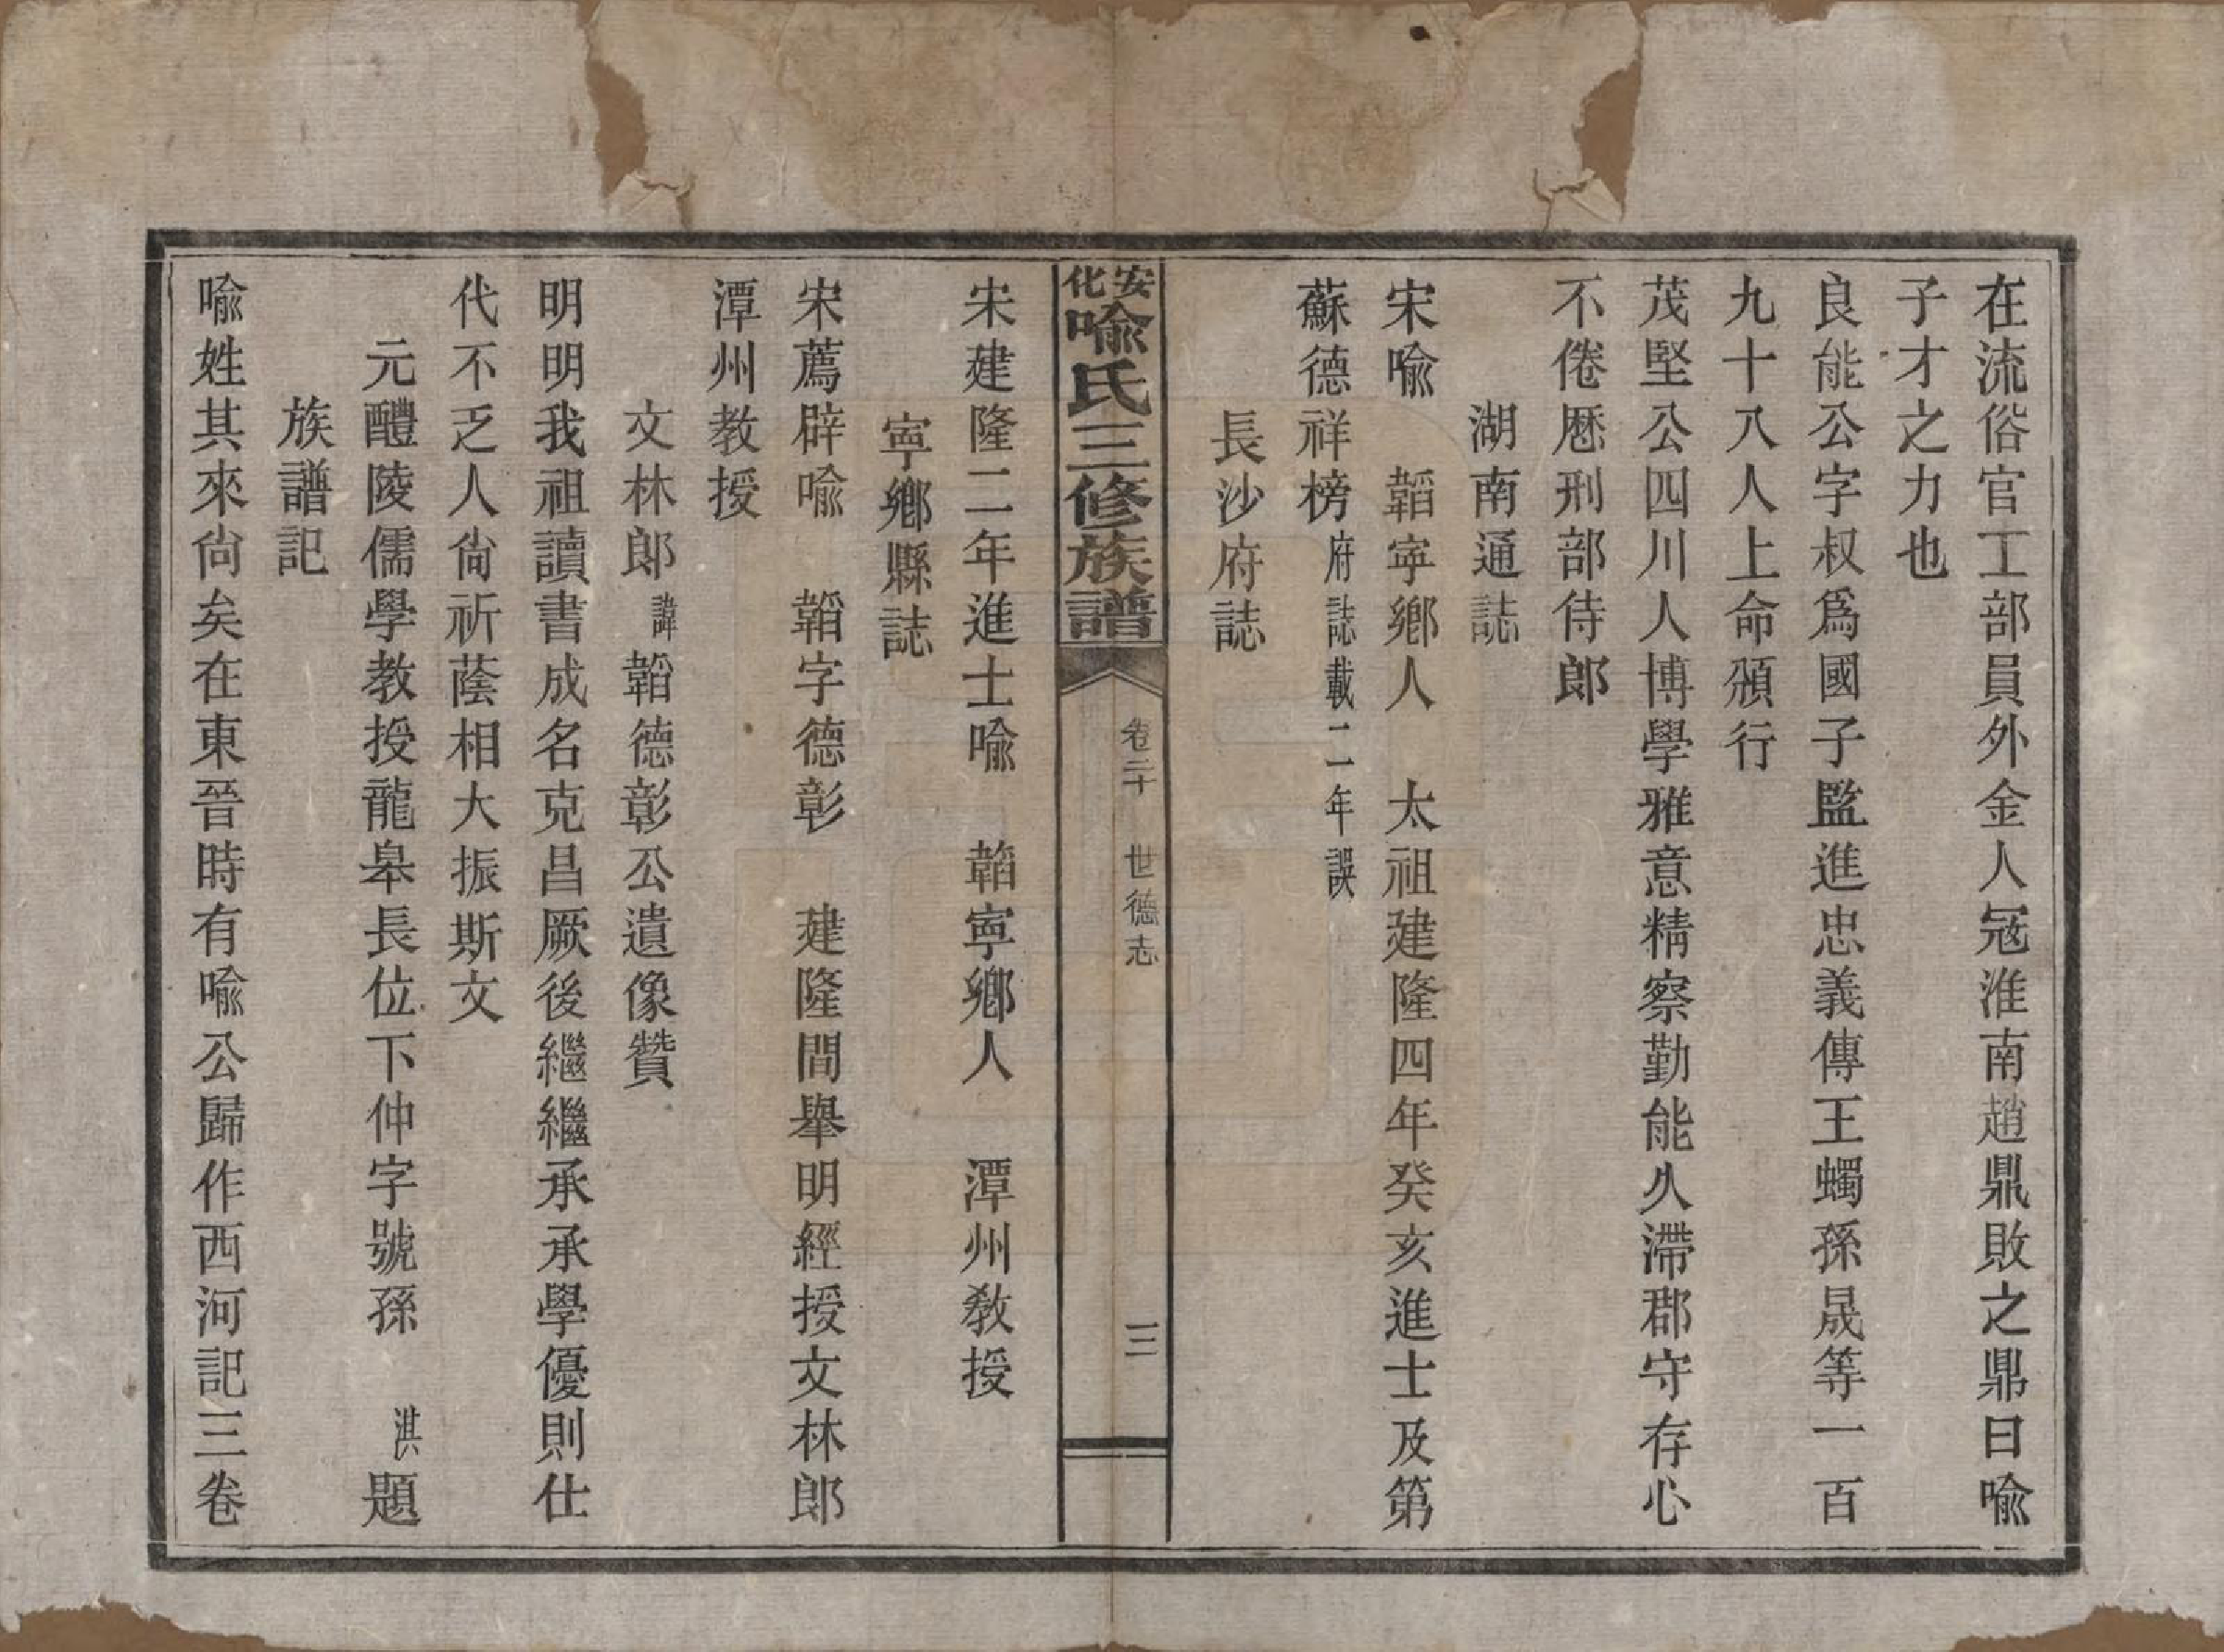 在流俗官工部員外金人冦淮南趙鼎敗之鼎曰喩
子才之力也
良能公字叔爲國子監進忠義傳王蠋孫晟等一百
九十八人上命頒行
茂堅公四川人博學雅意精察勤能久滯郡守存心
不倦厯刑部侍郎
湖南通誌
宋喩　韜寕鄕人　太祖建隆四年癸亥進士及第
蘇德祥榜府誌載二年誤
長沙府誌
安化喩氏三修族譜　卷二十　世德志　三
宋建隆二年進士喩　韜寕鄕人　潭州教授
寕鄕縣誌
宋薦辟喩　韜字德彰　建隆間舉明經授文林郎
潭州教授
文林郎諱韜德彰公遺像贊
明明我祖讀書成名克昌厥後繼繼承承學優則仕
代不乏人尙祈蔭相大振斯文
元醴陵儒學教授龍皋長位下仲字號孫　洪題
族譜記
喩姓其來尙矣在東晉時有喩公歸作西河記三卷